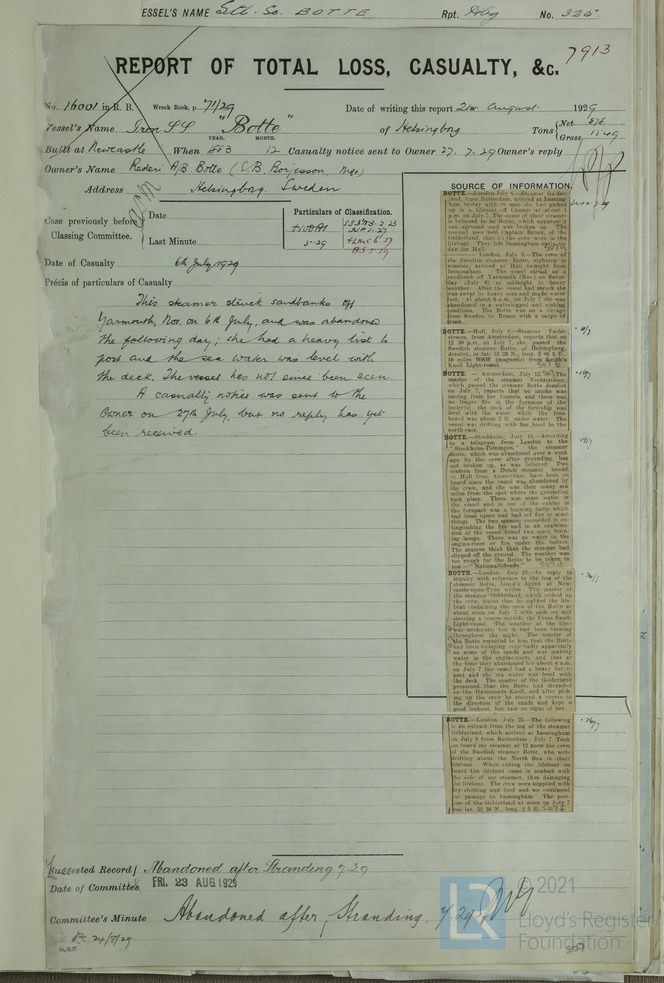 ESSEL'S NAME Stl. Sc. BOTTE Rpt. No. 325.
7913
REPORT OF TOTAL LOSS, CASUALTY, &c.
No. 16001 in R. B. Wreck Book, p. 71/29 Date of writing this report 21st August 1929
Vessel's Name Iron SS "Botte" of Helsingborg Tons { Net Gross
YEAR. MONTH.
Built at Newcastle When 883 12 Casualty notice sent to Owner 27.7.29 Owner's reply
Owner's Name Rederi A/B. Botte (S.B. Borjesson, Mgr)
Address Helsingborg. Sweden
SOURCE OF INFORMATION.
Case previously before Classing Committee. { Date
Last Minute
Particulars of Classification.
+100A1
5.29
Date of Casualty 6th July 1929
Précis of particulars of Casualty
This steamer struck sandbanks off
Yarmouth, Nor. on 6th July, and was abandoned
the following day; she had a heavy list to
port and the sea water was level with
the deck. The vessel has not since been seen.
A casualty notice was sent to the
Owner on 27th July, but no reply has yet
been received.
BOTTE.—London, July 8.—Steamer Gelderland, from Rotterdam, arrived at Immingham
BOTTE.—Hull, July 8.—Steamer Yachtstroom, from Amsterdam, reports that at
12 30 p.m. on July 7, she passed the
Swedish steamer Botte, of Helsingborg,
derelict, in lat. 52 59 N., long. 2 06 5 E.,
10 miles WSW (magnetic) from Smith's
Knoll Light-vessel.
BOTTE.—Amsterdam, July 12.—The
master of the steamer Yachtstroom,
which passed the steamer Botte derelict
on July 7, reports that no smoke was
issuing from her funnels, and there was
no longer fire in the furnaces of the
boiler(s); the deck of the foreship was
level with the water while the freeboard
was about 2 ft. under water. The
vessel was drifting with her head to the
north-east.
BOTTE.—Stockholm, July 15.—According
to a telegram from London to the
"Stockholm-Tidningen," the steamer
Botte, which was abandoned over a week
ago by the crew after grounding, has
not broken up, as was believed. Two
seamen from a Dutch steamer, bound
to Hull from Amsterdam, have been on
board since the vessel was abandoned by
the crew, and she was then many sea
miles from the spot where the grounding
took place. There was some water in
the vessel and in one of the cabins in
the forepart was a burning lamp which
had been upset and had set fire to some
things. The two seamen succeeded in extinguishing
the fire and in an examination
of the vessel found two more burning
lamps. There was no water in the
engine-room or fire under the boilers.
The seamen think that the steamer had
slipped off the ground. The weather was
too rough for the Botte to be taken in
tow.—"Nationaltidende."
BOTTE.—London, July 23.—In reply to
inquiry with reference to the loss of the
steamer Botte, Lloyd's Agent at Newcastle-upon-Tyne
writes: The master of
the steamer Gelderland, which picked up
the crew, states that he sighted the lifeboat
containing the crew of the Botte at
about noon on July 7 with sails set and
steering a course outside the Cross Sand
Light-vessel. The weather at the time
was moderate, but it had been blowing
throughout the night. The master of
the Botte reported to him that the Botte
had been bumping very badly apparently
on some of the sands and was making
water in the engine-room, and that at
the time they abandoned her about 6 a.m.
on July 7 the vessel had a heavy list to
port and the sea water was level with
the deck. The master of the Gelderland
presumed that the Botte had stranded
on the Hammonds Knoll, and after picking
up the crew he steered a course in
the direction of the sands and kept a
good lookout, but saw no signs of her.
BOTTE.—London, July 25.—The following
is an extract from the log of the steamer
Gelderland, which arrived at Immingham
on July 8 from Rotterdam: July 7. Took
on board my steamer at 12 noon the crew
of the Swedish steamer Botte, who were
drifting about the North Sea in their
lifeboat. When taking the lifeboat on
board the lifeboat came in contact with
the side of my steamer, thus damaging
the lifeboat. The crew were supplied with
dry clothing and food and we continued
our passage to Immingham. The position
of the Gelderland at noon on July 7
was lat. 52 34 N., long. 2 5 E.
Suggested Record Abandoned after Stranding 7.29
Date of Committee FRI. 23 AUG 1929
Committee's Minute Abandoned after Stranding. 7.29
24/8/29
LR
© 2021
Lloyd's Register
Foundation